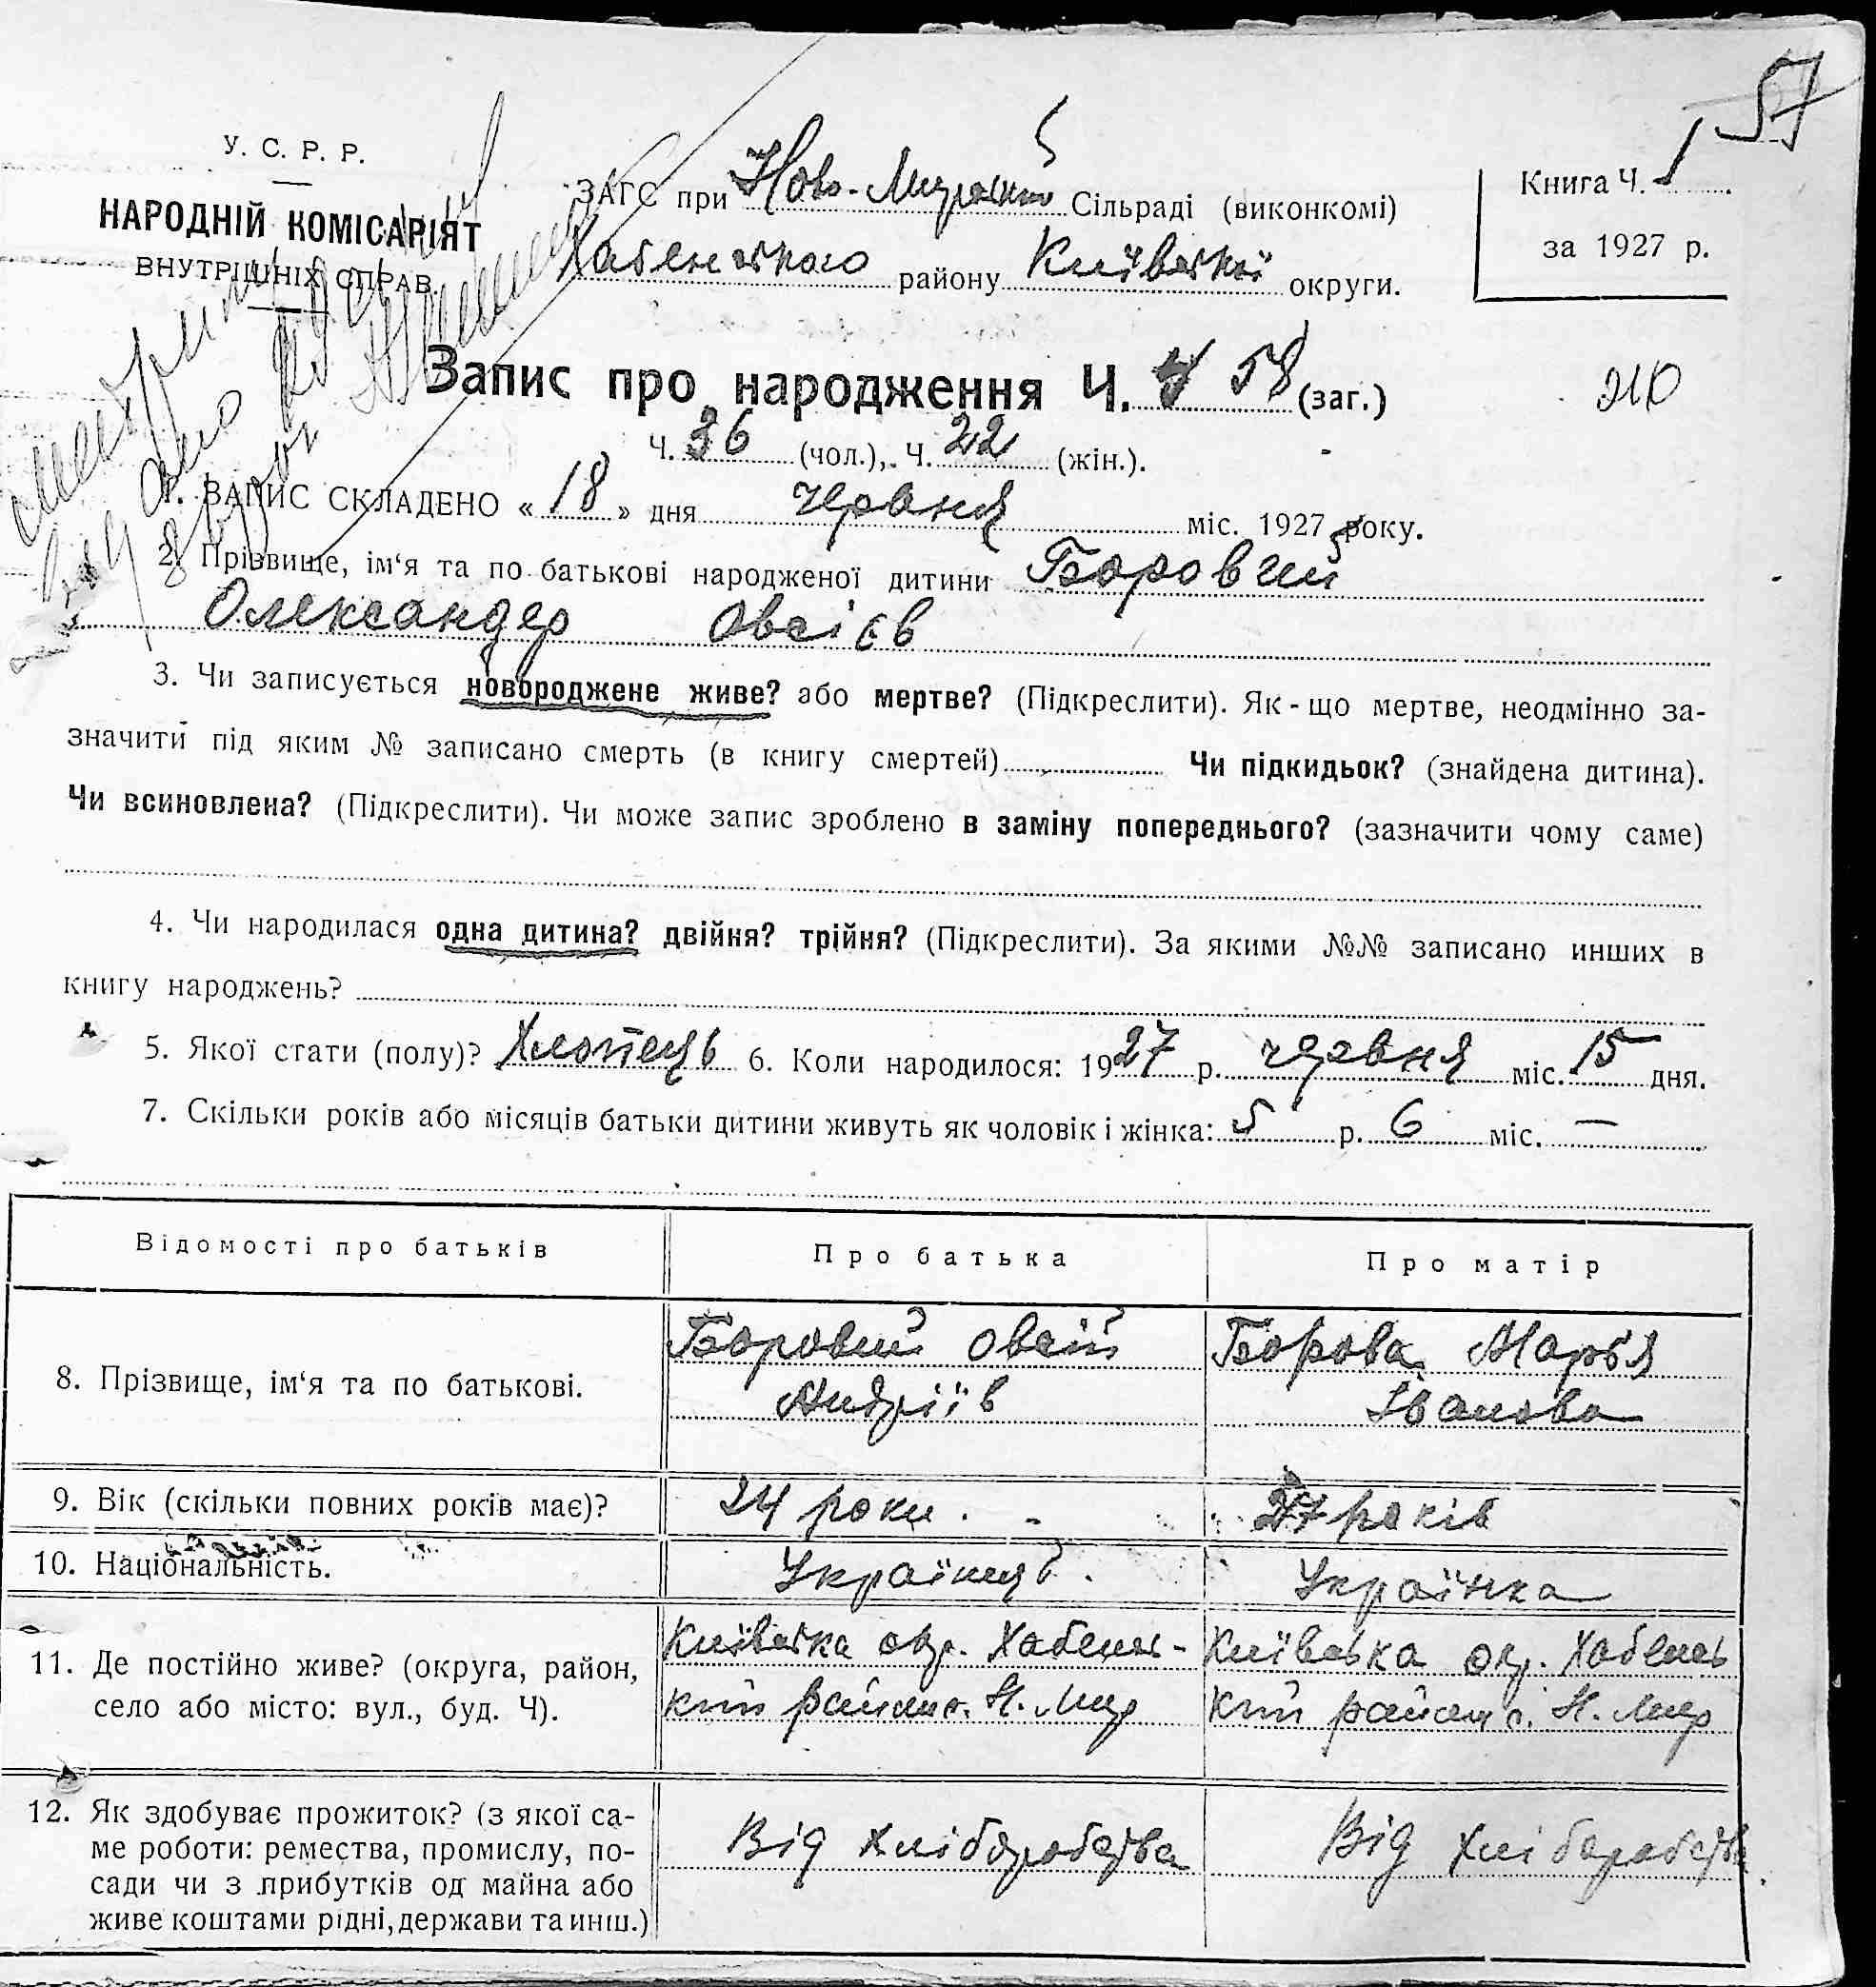 57
У. С. Р. Р.
НАРОДНІЙ КОМІСАРІЯТ
ВНУТРІШНІХ СПРАВ.
ЗАГС при Ново-Мирській Сільраді (виконкомі)
Хабенського району Київської округи.
Книга Ч. 1
за 1927 р.
Запис про народження Ч. 58 (заг.)
210
Ч. 36 (чол.), Ч. 22 (жін.).
1. ЗАПИС СКЛАДЕНО « 18 » дня червня міс. 1927 року.
2. Прізвище, ім‘я та по батькові народженої дитини Боровий
Олександер Овсієв
3. Чи записується новороджене живе? або мертве? (Підкреслити). Як-що мертве, неодмінно за-
значити під яким № записано смерть (в книгу смертей) Чи підкидьок? (знайдена дитина).
Чи всиновлена? (Підкреслити). Чи може запис зроблено в заміну попереднього? (зазначити чому саме)
4. Чи народилася одна дитина? двійня? трійня? (Підкреслити). За якими №№ записано инших в
книгу народжень?
5. Якої стати (полу)? Хлопець 6. Коли народилося: 1927 р. червня міс. 15 дня.
7. Скільки років або місяців батьки дитини живуть як чоловік і жінка: 5 р. 6 міс. —
Відомості про батьків
Про батька
Про матір
8. Прізвище, ім‘я та по батькові.
Боровий Овсій
Андріїв
Борова Марья
Іванова
9. Вік (скільки повних років має)?
24 роки.
років
10. Національність.
Українець.
Українка
11. Де постійно живе? (округа, район,
село або місто: вул., буд. Ч).
Київська окр. Хабенсь-
кий район с. Н. Мир
Київська окр. Хабенсь
кий район с. Н. Мир
12. Як здобуває прожиток? (з якої са-
ме роботи: ремества, промислу, по-
сади чи з прибутків од майна або
живе коштами рідні, держави та инш.)
Від хліборобства
Від хліборобства